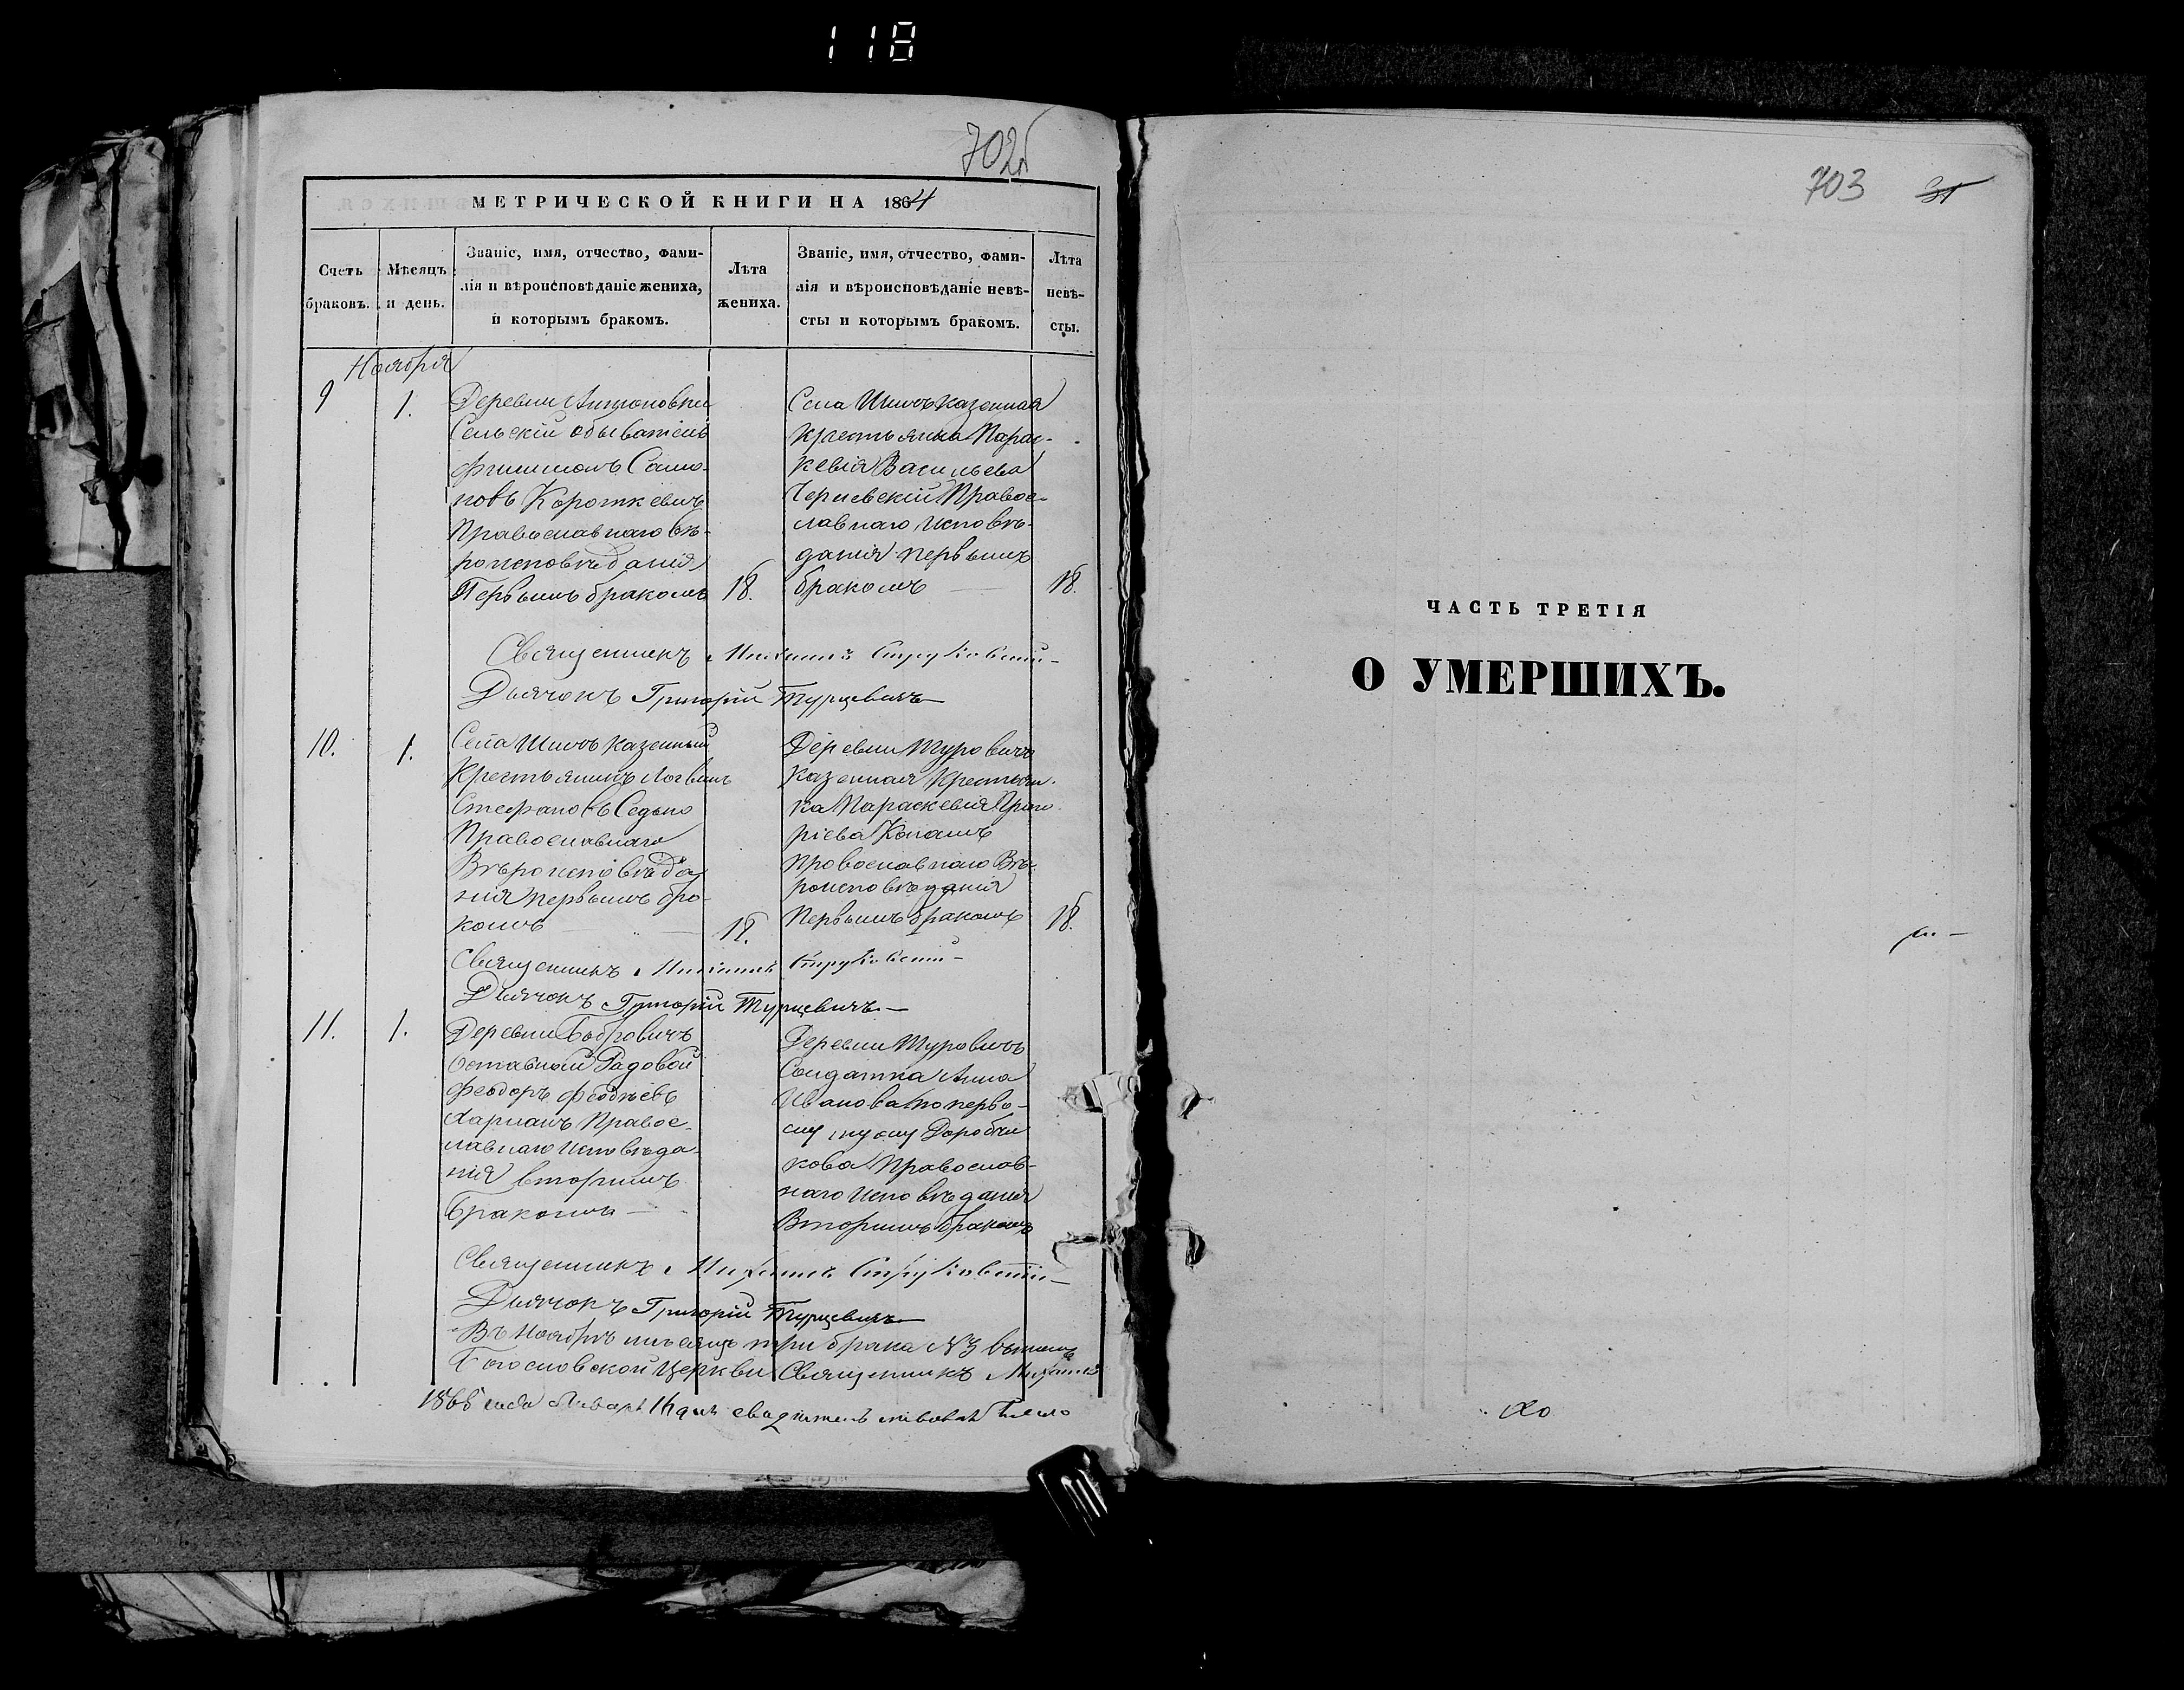 118
702б
МЕТРИЧЕСКОЙ КНИГИ НА 1864
Счетъ браковъ.
Мѣсяцъ и день.
Званіе, имя, отчество, фами-
лія и вѣроисповѣданіе жениха,
и которымъ бракомъ.
Лѣта
жениха.
Званіе, имя, отчество, фами-
лія и вѣроисповѣданіе невѣ-
сты и которымъ бракомъ.
Лѣта
невѣ-
сты.
Ноября
9
1.
Деревни Антоновки
Сельскій обыватель
Филимонъ Само-
новъ Короткевичъ
Православнаго вѣ-
роисповѣданія
Первымъ бракомъ
18.
Села Шиичъ казенная
крестьянка Парас-
кевія Васильева
Православнаго исповѣ-
данія первымъ
бракомъ
18.
Священникъ Михаилъ Струковскій
Дьячокъ Григорій Турцевичъ
10.
1.
Села Шиичъ казенный
Крестьянинъ Логвинъ
Стефановъ Седько
Православнаго
Вѣроисповѣда
нія первымъ бра-
комъ
18.
Деревни Туровичъ
казенная крестьян-
ка Параскевія Григо
ріева Копачъ
провославнаго Вѣ-
роисповѣданія
Первымъ бракомъ
18.
Священникъ Михаилъ Струковскій
Дьячокъ Григорій Турцевичъ
11.
1.
Деревни Бобровичъ
Отставной Рядовой
Феодоръ
Православнаго исповѣда-
нія вторымъ
бракомъ
Деревни Туровичъ
Солдатка Анна
Иванова по перво-
му мужу
Православ-
наго исповѣданія
Вторымъ бракомъ
Священникъ Михаилъ Струковскій
Дьячокъ Григорій Турцевичъ
Въ Ноябрѣ мѣсяцѣ три брака №3
Богословской Церкви Священникъ Михаилъ
1865 года Января 16 дня свидѣтельствовалъ
703
31
ЧАСТЬ ТРЕТІЯ
О УМЕРШИХЪ.